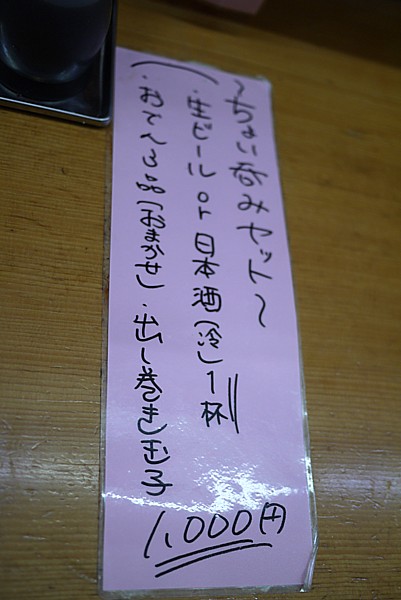 ～ちょい呑みセット～
・生ビール or 日本酒(冷)1杯
・おでん3品(おまかせ)・出し巻き玉子
1,000円